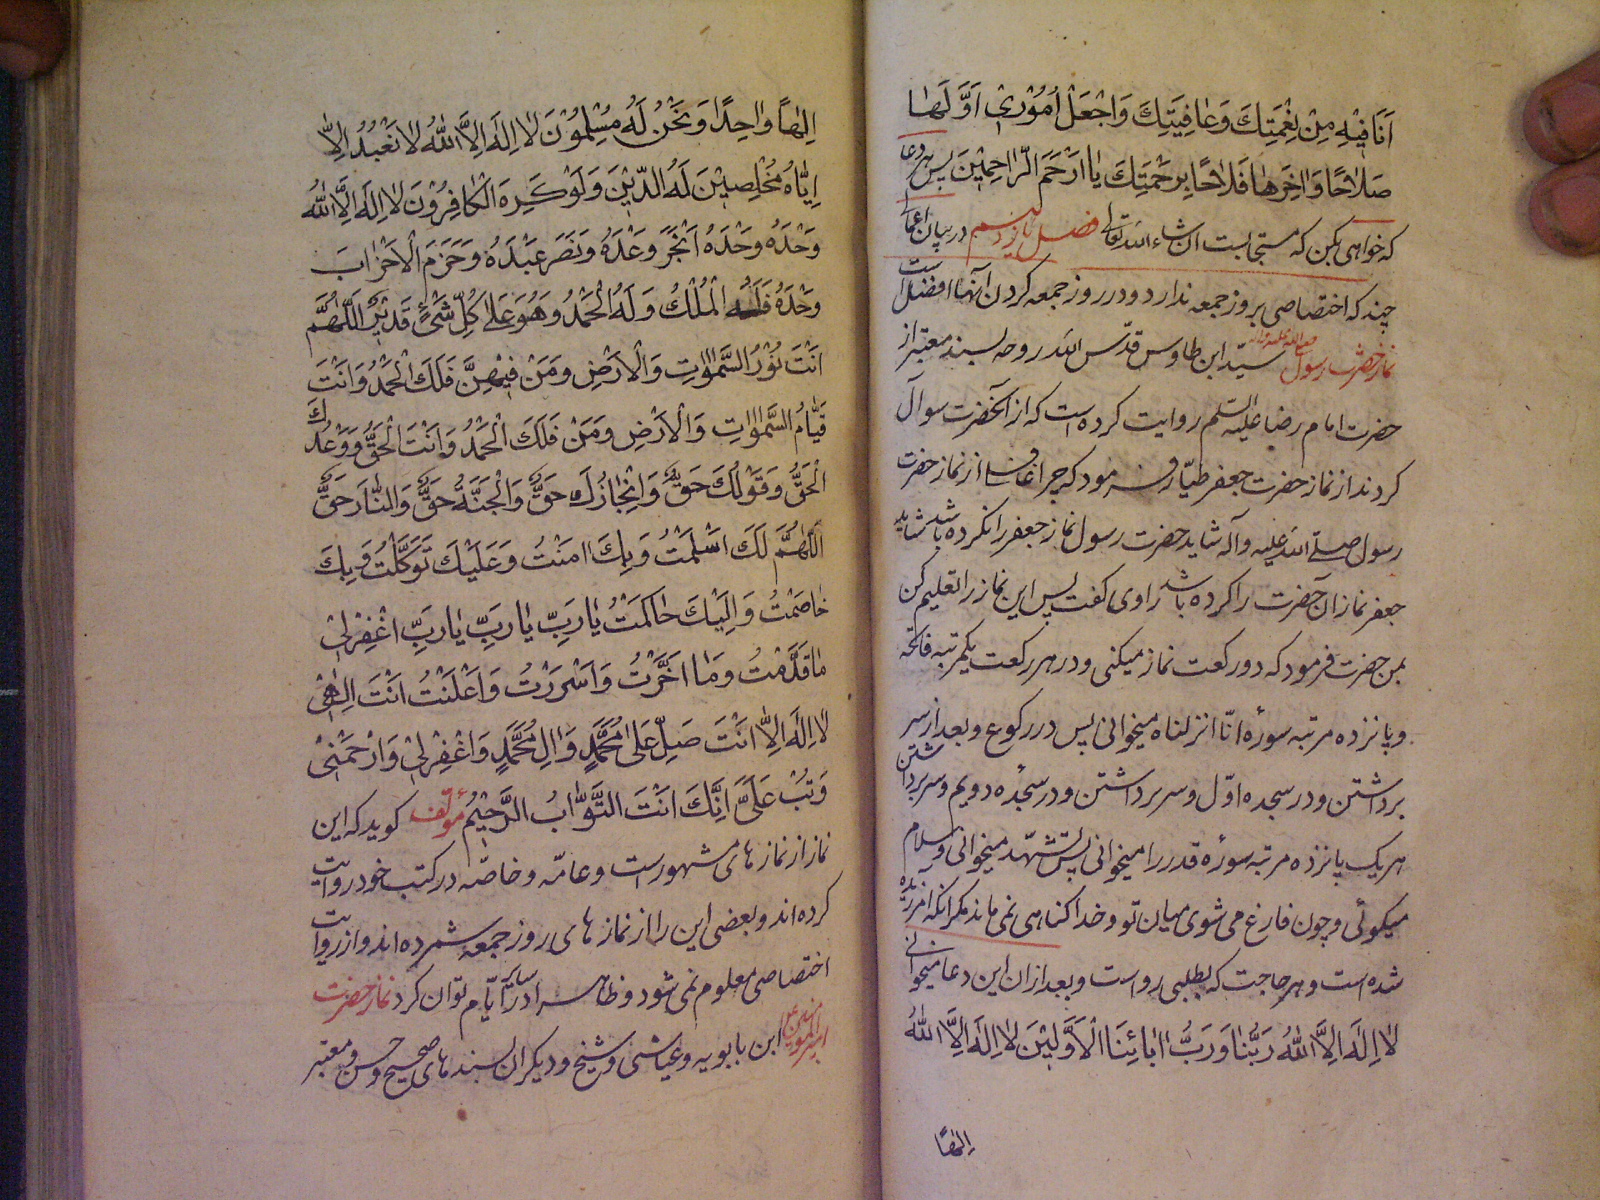 اَنَا فیٖهِ مِنْ نِعْمَتِكَ وَعَافِیَتِكَ وَاجْعَلْ اُمُوْرِیْ اَوَّلَهَا
صَلَاحًا وَاٰخِرَهَا فَلَاحًا بِرَحْمَتِكَ یَا اَرْحَمَ الرَّاحِمِیْنَ پس هر دعا
که خواهی بکن که مستجابست ان شاء الله تعالی فصل یازدهم در بیان اعمالی
چند که اختصاصی بروز جمعه ندارد و در روز جمعه کردن آنها افضل است
نماز حضرت رسول صلی الله علیه و آله سیّد ابن طاوس قدّس الله روحه بسند معتبر از
حضرت امام رضا علیه السلم روایت کرده است که از آنحضرت سوال
کردند از نماز حضرت جعفر طیّار فرمود که چرا غافلی از نماز حضرت
رسول صلّی الله علیه و آله شاید حضرت رسول نماز جعفر را نکرده باشد شاید
جعفر نماز آن حضرت را کرده باشد راوی کفت پس این نماز را تعلیم کن
بمن حضرت فرمود که دو رکعت نماز میکنی و در هر رکعت یکمرتبه فاتحة
و پانزده مرتبه سورهٔ انّا انزلناه میخوانی پس در رکوع و بعد از سر
برداشتن و در سجده اوّل و سر برداشتن و در سجدهٔ دویم و سر برداشتن
هر یک پانزده مرتبه سورهٔ قدر را میخوانی پس تشهّد میخوانی و سلام
میکوئی و چون فارغ می شوی میان تو و خدا کناهی نمی ماند مکر انکه آمرزیده
شده است و هر حاجت که بطلبی رواست و بعد از ان این دعا میخوانی
لَا اِلٰهَ اِلَّا اللهُ رَبُّنَا وَرَبُّ اٰبَائِنَا الْاَوَّلِیْنَ لَا اِلٰهَ اِلَّا اللهُ
اِلٰهًا
اِلٰهًا وَاحِدًا وَنَحْنُ لَهُ مُسْلِمُوْنَ لَا اِلٰهَ اِلَّا اللهُ لَا نَعْبُدُ اِلَّا
اِیَّاهُ مُخْلِصِیْنَ لَهُ الدِّیْنَ وَلَوْ كَرِهَ الْكَافِرُوْنَ لَا اِلٰهَ اِلَّا اللهُ
وَحْدَهُ وَحْدَهُ وَحْدَهُ اَنْجَزَ وَعْدَهُ وَنَصَرَ عَبْدَهُ وَهَزَمَ الْاَحْزَابَ
وَحْدَهُ فَلَهُ الْمُلْكُ وَلَهُ الْحَمْدُ وَهُوَ عَلٰی كُلِّ شَیْءٍ قَدِیْرٌ اَللّٰهُمَّ
اَنْتَ نُوْرُ السَّمٰوَاتِ وَالْاَرْضِ وَمَنْ فِیْهِنَّ فَلَكَ الْحَمْدُ وَاَنْتَ
قَیَّامُ السَّمٰوَاتِ وَالْاَرْضِ وَمَنْ فَلَكَ الْحَمْدُ وَاَنْتَ الْحَقُّ وَوَعْدُكَ
الْحَقُّ وَقَوْلُكَ حَقٌّ وَاِنْجَازُكَ حَقٌّ وَالْجَنَّةُ حَقٌّ وَالنَّارُ حَقٌّ
اَللّٰهُمَّ لَكَ اَسْلَمْتُ وَبِكَ اٰمَنْتُ وَعَلَیْكَ تَوَكَّلْتُ وَبِكَ
خَاصَمْتُ وَاِلَیْكَ حَاكَمْتُ یَا رَبِّ یَا رَبِّ یَا رَبِّ اغْفِرْ لِیْ
مَا قَدَّمْتُ وَمَا اَخَّرْتُ وَاَسْرَرْتُ وَاَعْلَنْتُ اَنْتَ اِلٰهِیْ
لَا اِلٰهَ اِلَّا اَنْتَ صَلِّ عَلٰی مُحَمَّدٍ وَاٰلِ مُحَمَّدٍ وَاغْفِرْ لِیْ وَارْحَمْنِیْ
وَتُبْ عَلَیَّ اِنَّكَ اَنْتَ التَّوَّابُ الرَّحِیْمُ مؤلّف کوید که این
نماز از نماز های مشهور است و عامّه و خاصّه در کتب خود روایت
کرده اند و بعضی این را از نماز های روز جمعه شمرده اند و از روایت
اختصاصی معلوم نمی شود و ظاهرا در سایر ایّام توان کرد نماز حضرت
امیر المومنین ابن بابویه و عیاشی و شیخ و دیکران بسند های صحیح و حسن و معتبر